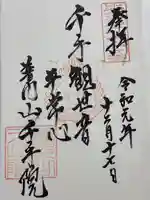 奉拝
令和元年
十二月十七日
千手観世音
平常心
山千手院